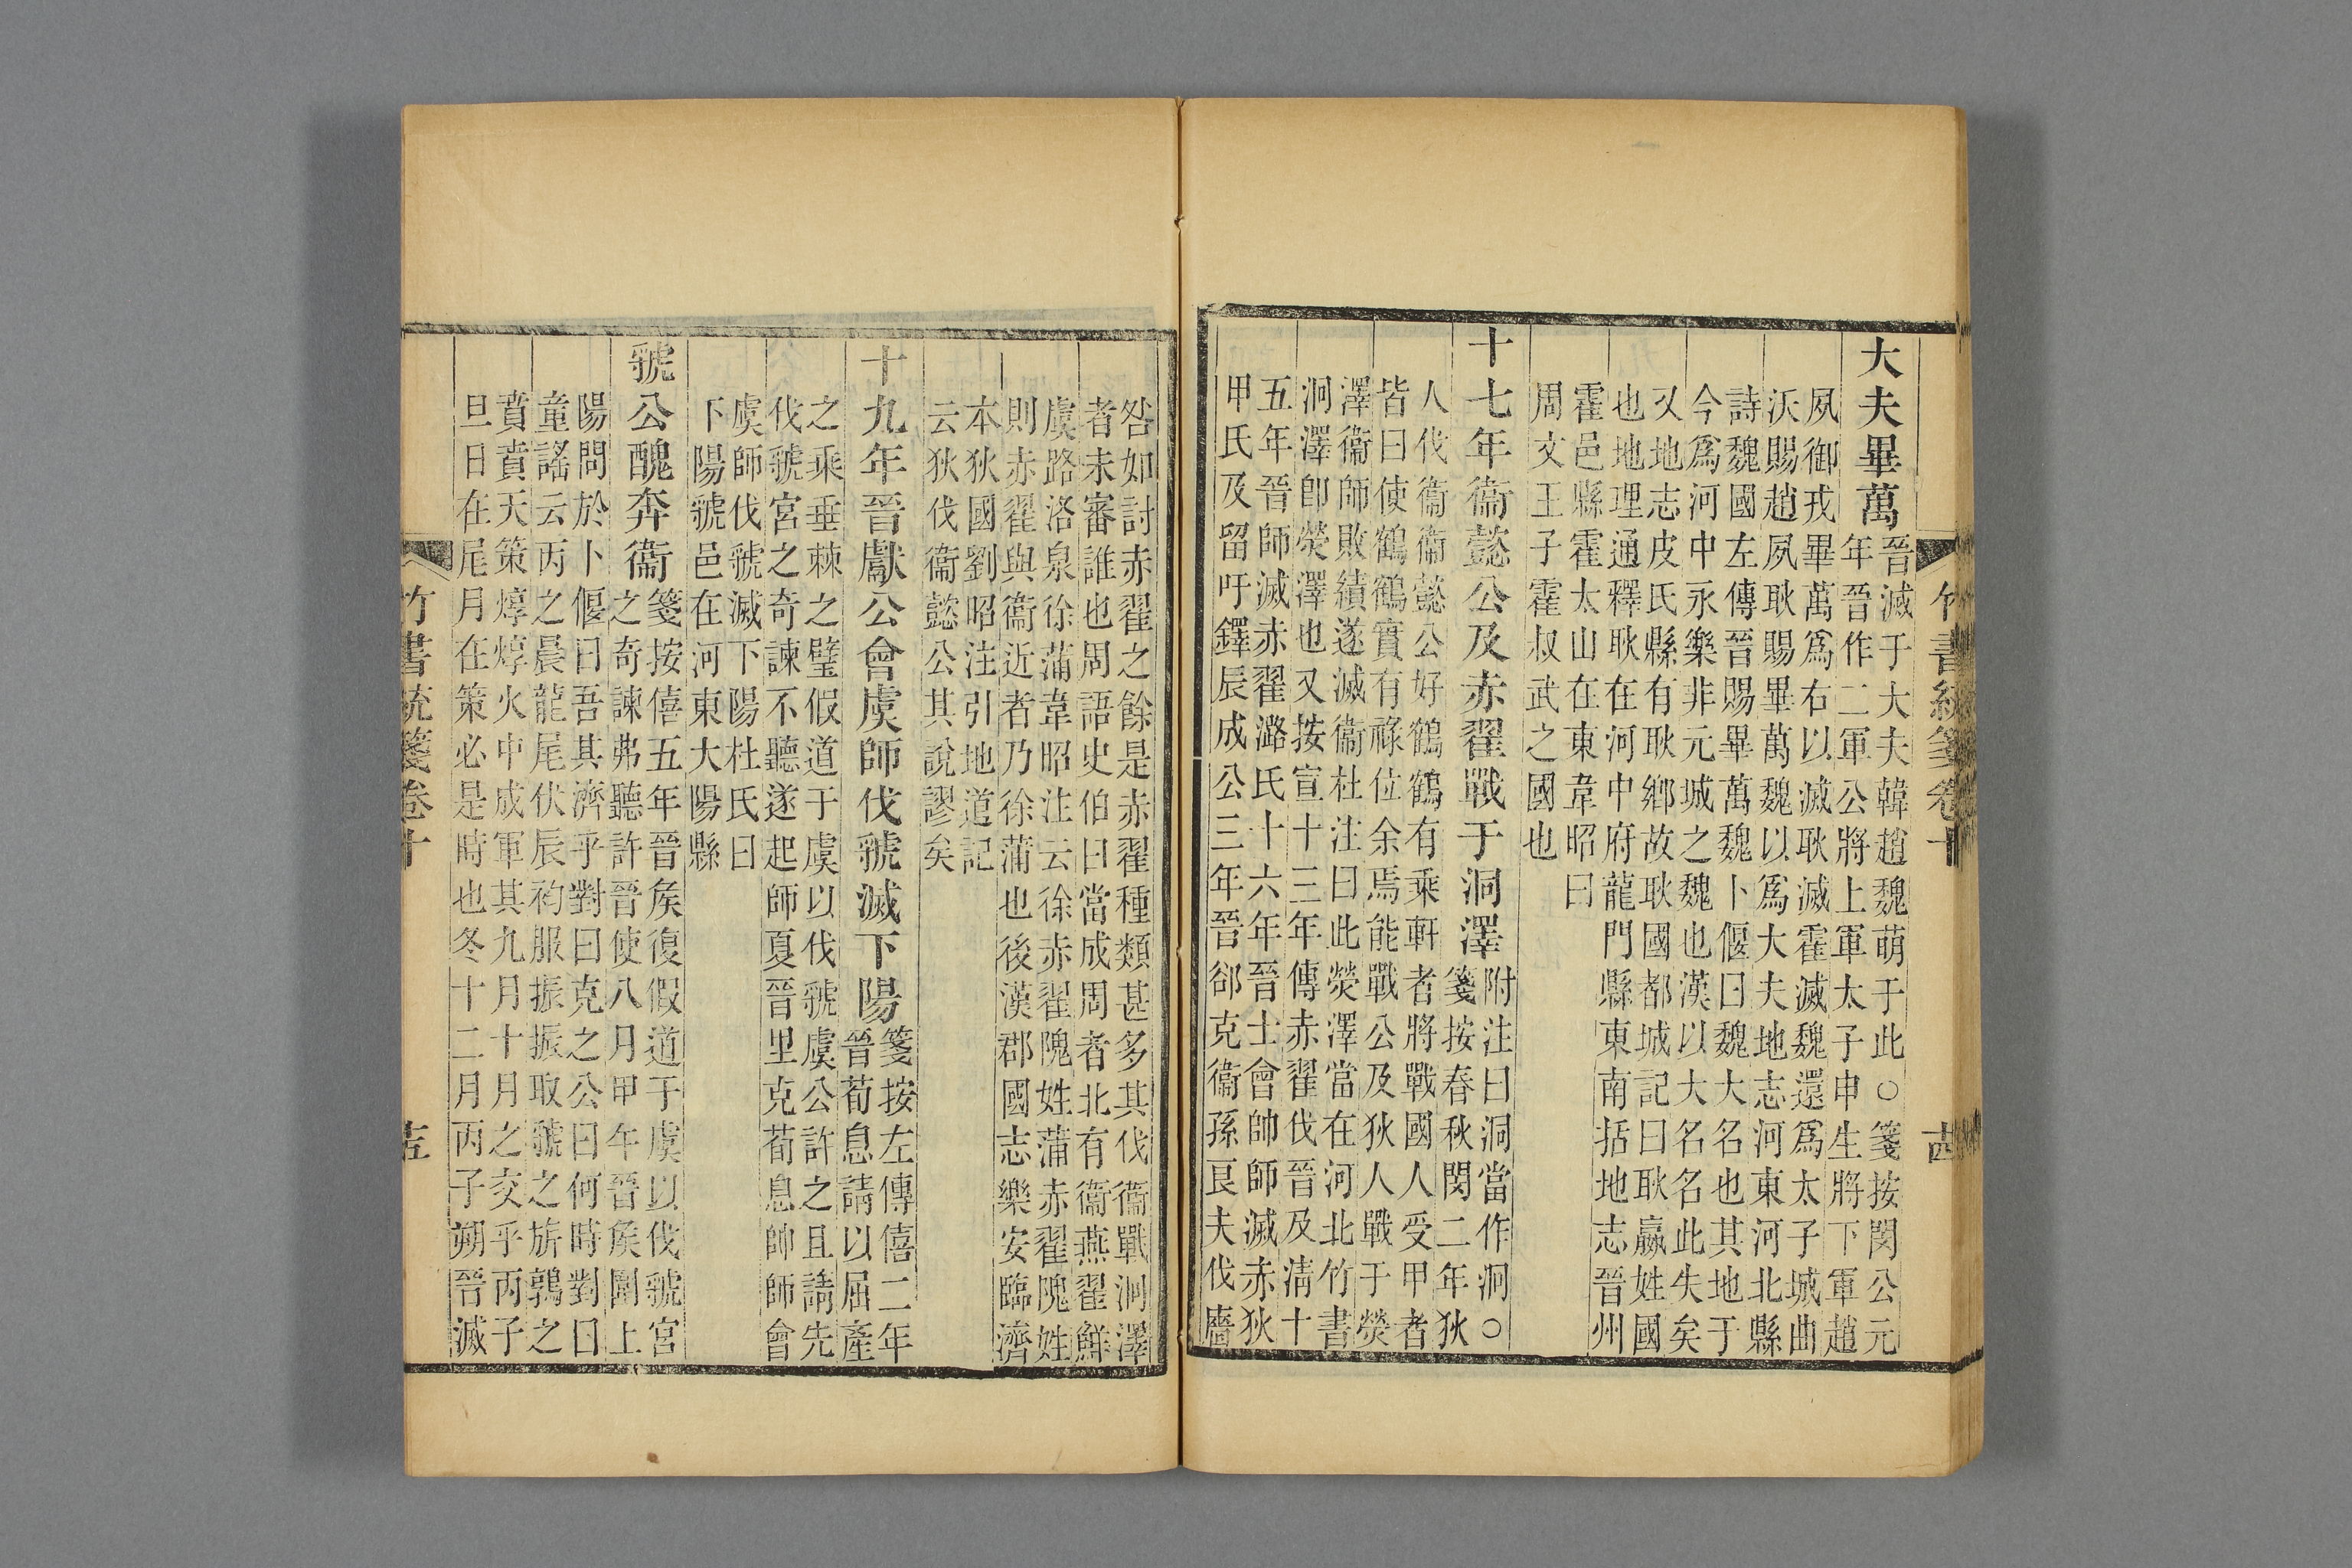 竹書統箋卷十 十四
大夫畢萬
晉滅于大夫韓趙魏萌于此○箋按閔公元
年晉作二軍公將上軍太子申生將下軍趙
夙御戎畢萬爲右以滅耿滅霍滅魏還爲太子城曲
沃賜趙夙耿賜畢萬魏以爲大夫地志河東河北縣
詩魏國左傳晉賜畢萬魏卜偃曰魏大名也其地于
今爲河中永樂非元城之魏也漢以大名名此失矣
又地志皮氏縣有耿鄉故耿國都城記曰耿嬴姓國
也地理通釋耿在河中府龍門縣東南括地志晉州
霍邑縣霍太山在東韋昭曰
周文王子霍叔武之國也
十七年衞懿公及赤翟戰于洞澤
附注曰洞當作泂○
箋按春秋閔二年狄
人伐衞衞懿公好鶴鶴有乘軒者將戰國人受甲者
皆曰使鶴鶴實有祿位余焉能戰公及狄人戰于熒
澤衞師敗績遂滅衞杜注曰此熒澤當在河北竹書
泂澤卽熒澤也又按宣十三年傳赤翟伐晉及淸十
五年晉師滅赤翟潞氏十六年晉士會帥師滅赤狄
甲氏及留吁鐸辰成公三年晉郤克衞孫良夫伐廧
咎如討赤翟之餘是赤翟種類甚多其伐衞戰泂澤
者未審誰也周語史伯曰當成周者北有衞燕翟鮮
虞路洛泉徐蒲韋昭注云徐赤翟隗姓蒲赤翟隗姓
則赤翟與衞近者乃徐蒲也後漢郡國志樂安臨濟
本狄國劉昭注引地道記
云狄伐衞懿公其說謬矣
十九年晉獻公會虞師伐虢滅下陽
箋按左傳僖二年
晉荀息請以屈產
之乘垂棘之璧假道于虞以伐虢虞公許之且請先
伐虢宮之奇諫不聽遂起師夏晉里克荀息帥師會
虞師伐虢滅下陽杜氏曰
下陽虢邑在河東大陽縣
虢公醜奔衞
箋按僖五年晉矦復假道于虞以伐虢宮
之奇諫弗聽許晉使八月甲午晉矦圍上
陽問於卜偃曰吾其濟乎對曰克之公曰何時對曰
童謠云丙之晨龍尾伏辰袀服振振取虢之旂鶉之
賁賁天策焞焞火中成軍其九月十月之交乎丙子
旦日在尾月在策必是時也冬十二月丙子朔晉滅
竹書統箋卷十 十五